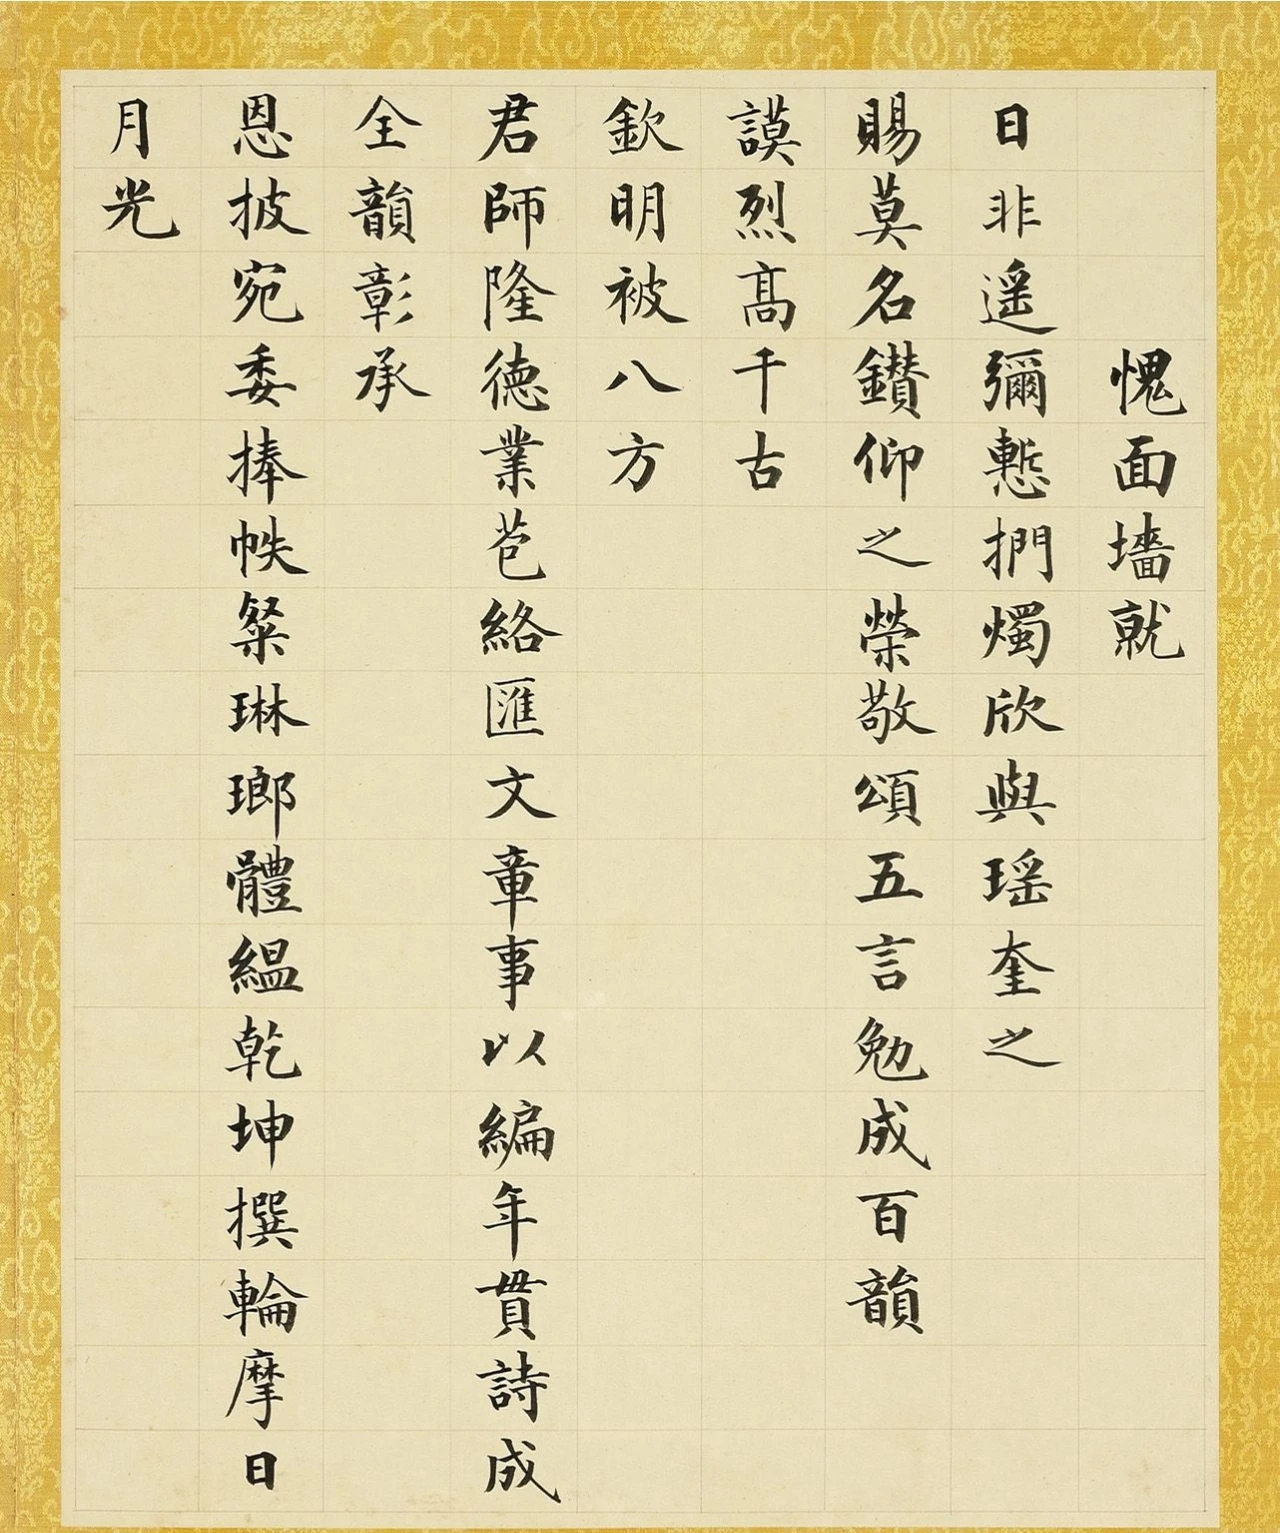 愧面墻就
日非遥彌慙捫燭欣與瑶奎之
賜莫名鑚仰之榮敬頌五言勉成百韻
謨烈髙千古
欽明被八方
君師隆德業苞絡匯文章事以編年貫詩成
全韻彰承
恩披宛委捧帙粲琳瑯體緼乾坤撰輪摩日
月光